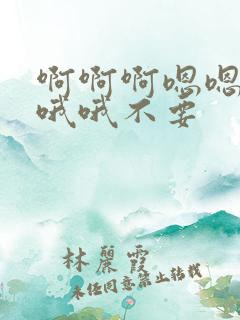 啊啊啊嗯嗯
哦哦不要
林麗霞
未经同意禁止转载